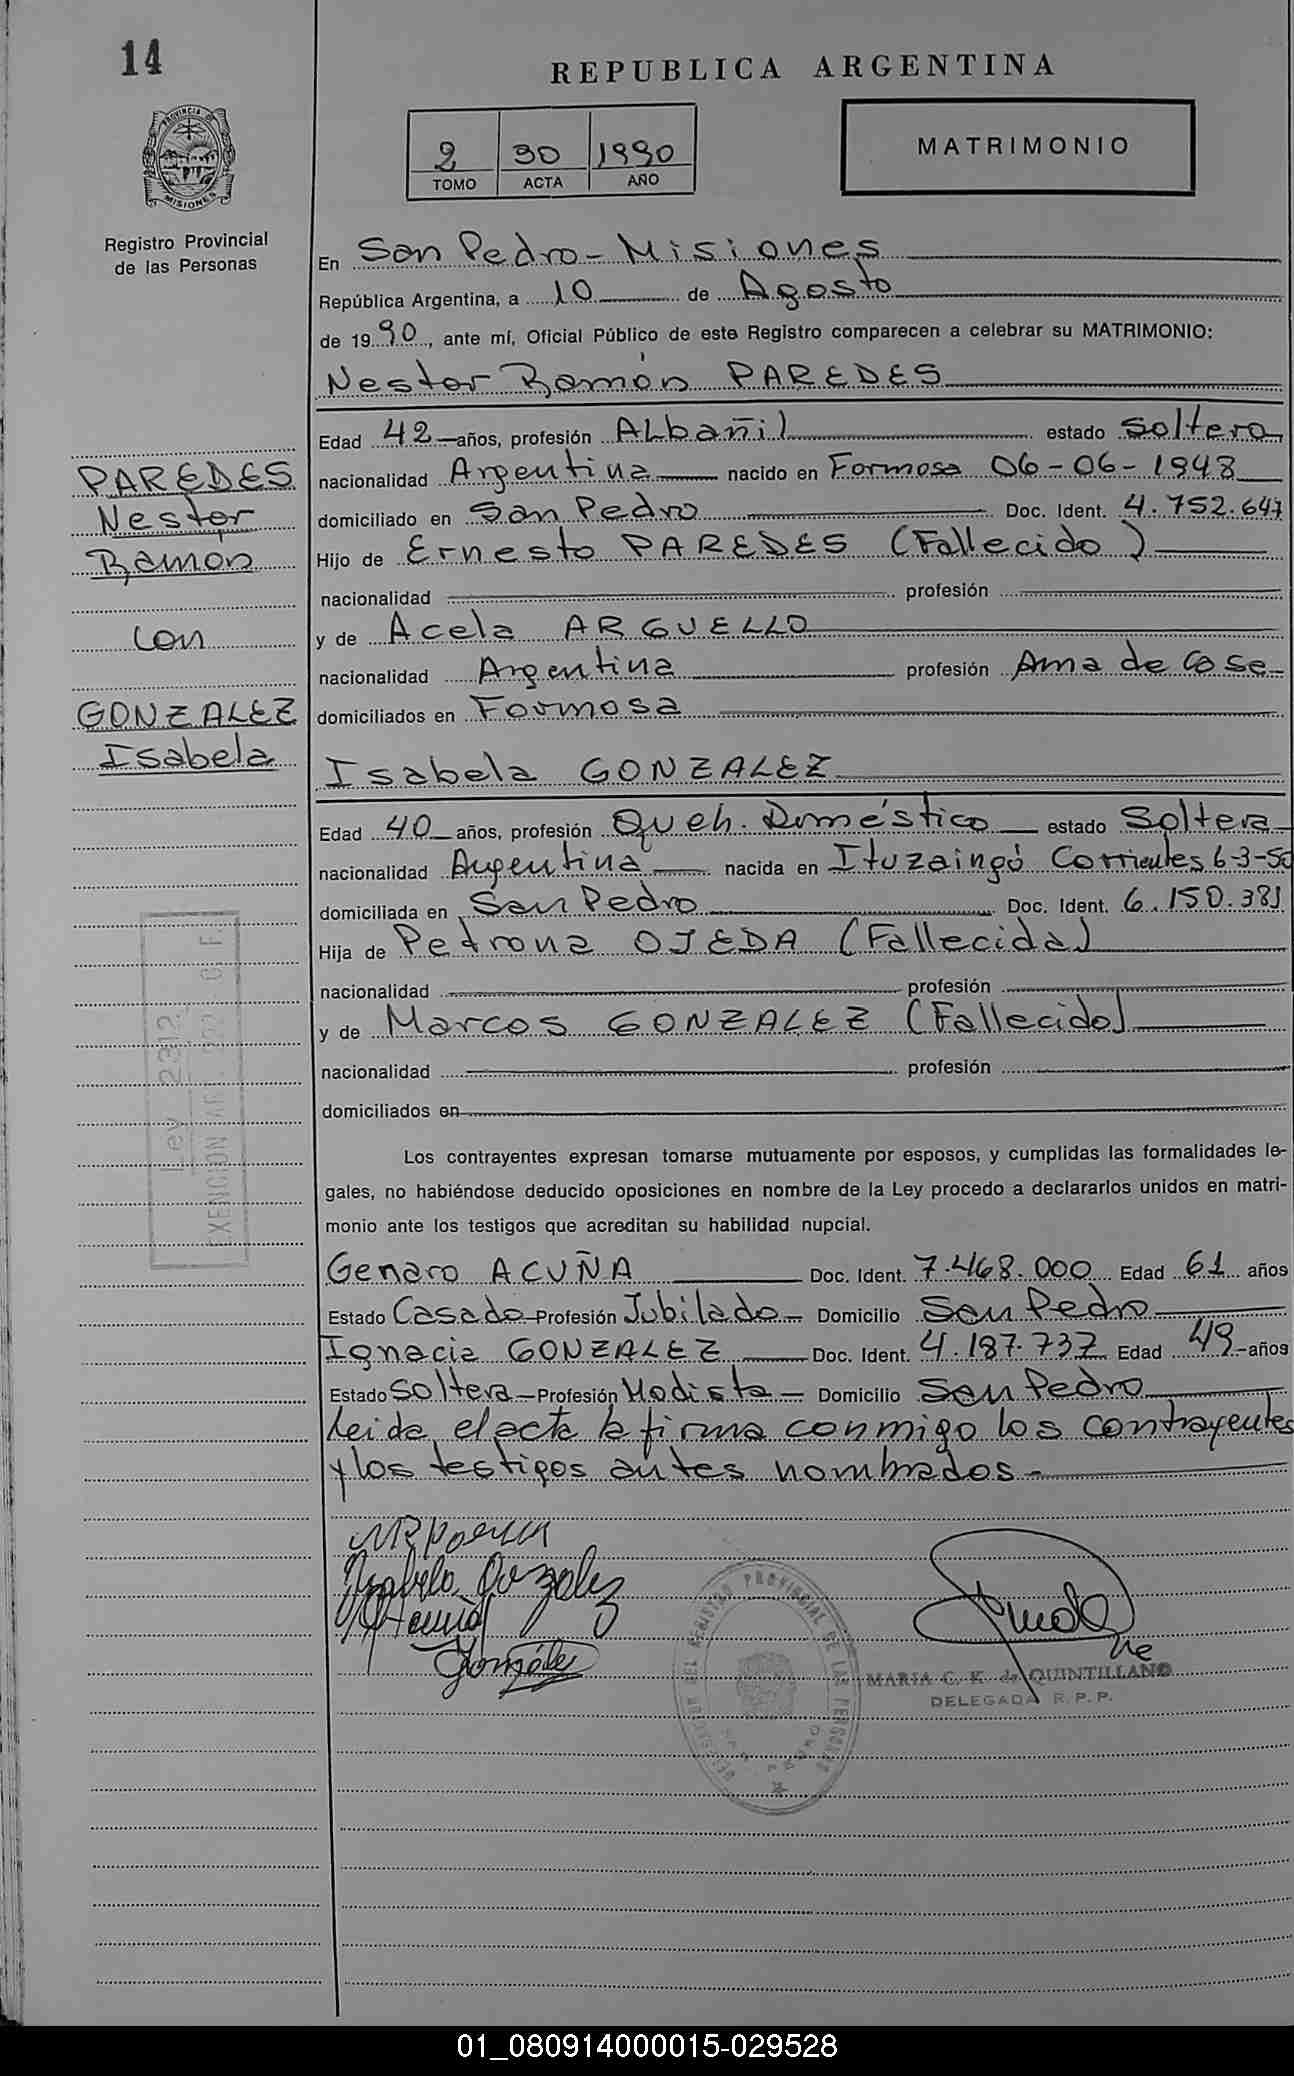 14
REPUBLICA ARGENTINA
PROVINCIA DE
MISIONES
2 30 1990
TOMO ACTA AÑO
MATRIMONIO
Registro Provincial
de las Personas
En San Pedro - Misiones
República Argentina, a 10 de Agosto
de 1990, ante mí, Oficial Público de este Registro comparecen a celebrar su MATRIMONIO:
Nestor Ramón PAREDES
Edad 42 años, profesión ALbañil estado Soltero
nacionalidad Argentina nacido en Formosa 06-06-1948
domiciliado en San Pedro Doc. Ident. 4.752.647
Hijo de Ernesto PAREDES (Fallecido)
nacionalidad profesión
y de Acela ARGUELLO
nacionalidad Argentina profesión Ama de Casa
domiciliados en Formosa
PAREDES
Nestor
Ramón
con
GONZALEZ
Isabela
Isabela GONZALEZ
Edad 40 años, profesión Queh. Doméstico estado Soltera
nacionalidad Argentina nacida en Ituzaingó Corrientes 6-3-50
domiciliada en San Pedro Doc. Ident. 6.150.381
Hija de Petrona OJEDA (Fallecida)
nacionalidad profesión
y de Marcos GONZALEZ (Fallecido)
nacionalidad profesión
domiciliados en
Ley 2312
EXENCION ART. 222
Los contrayentes expresan tomarse mutuamente por esposos, y cumplidas las formalidades le-
gales, no habiéndose deducido oposiciones en nombre de la Ley procedo a declararlos unidos en matri-
monio ante los testigos que acreditan su habilidad nupcial.
Genaro ACUÑA Doc. Ident. 7.468.000 Edad 61 años
Estado Casado Profesión Jubilado Domicilio San Pedro
Ignacia GONZALEZ Doc. Ident. 4.187.737 Edad 49 años
Estado Soltera Profesión Modista Domicilio San Pedro
Leida el acta la firma conmigo los contrayentes
y los testigos antes nombrados.-
Isabela Gonzalez
Acuña
González
REGISTRO PROVINCIAL DE LAS PERSONAS
MARIA C. K. de QUINTILLANO
DELEGADA R. P. P.
01_080914000015-029528